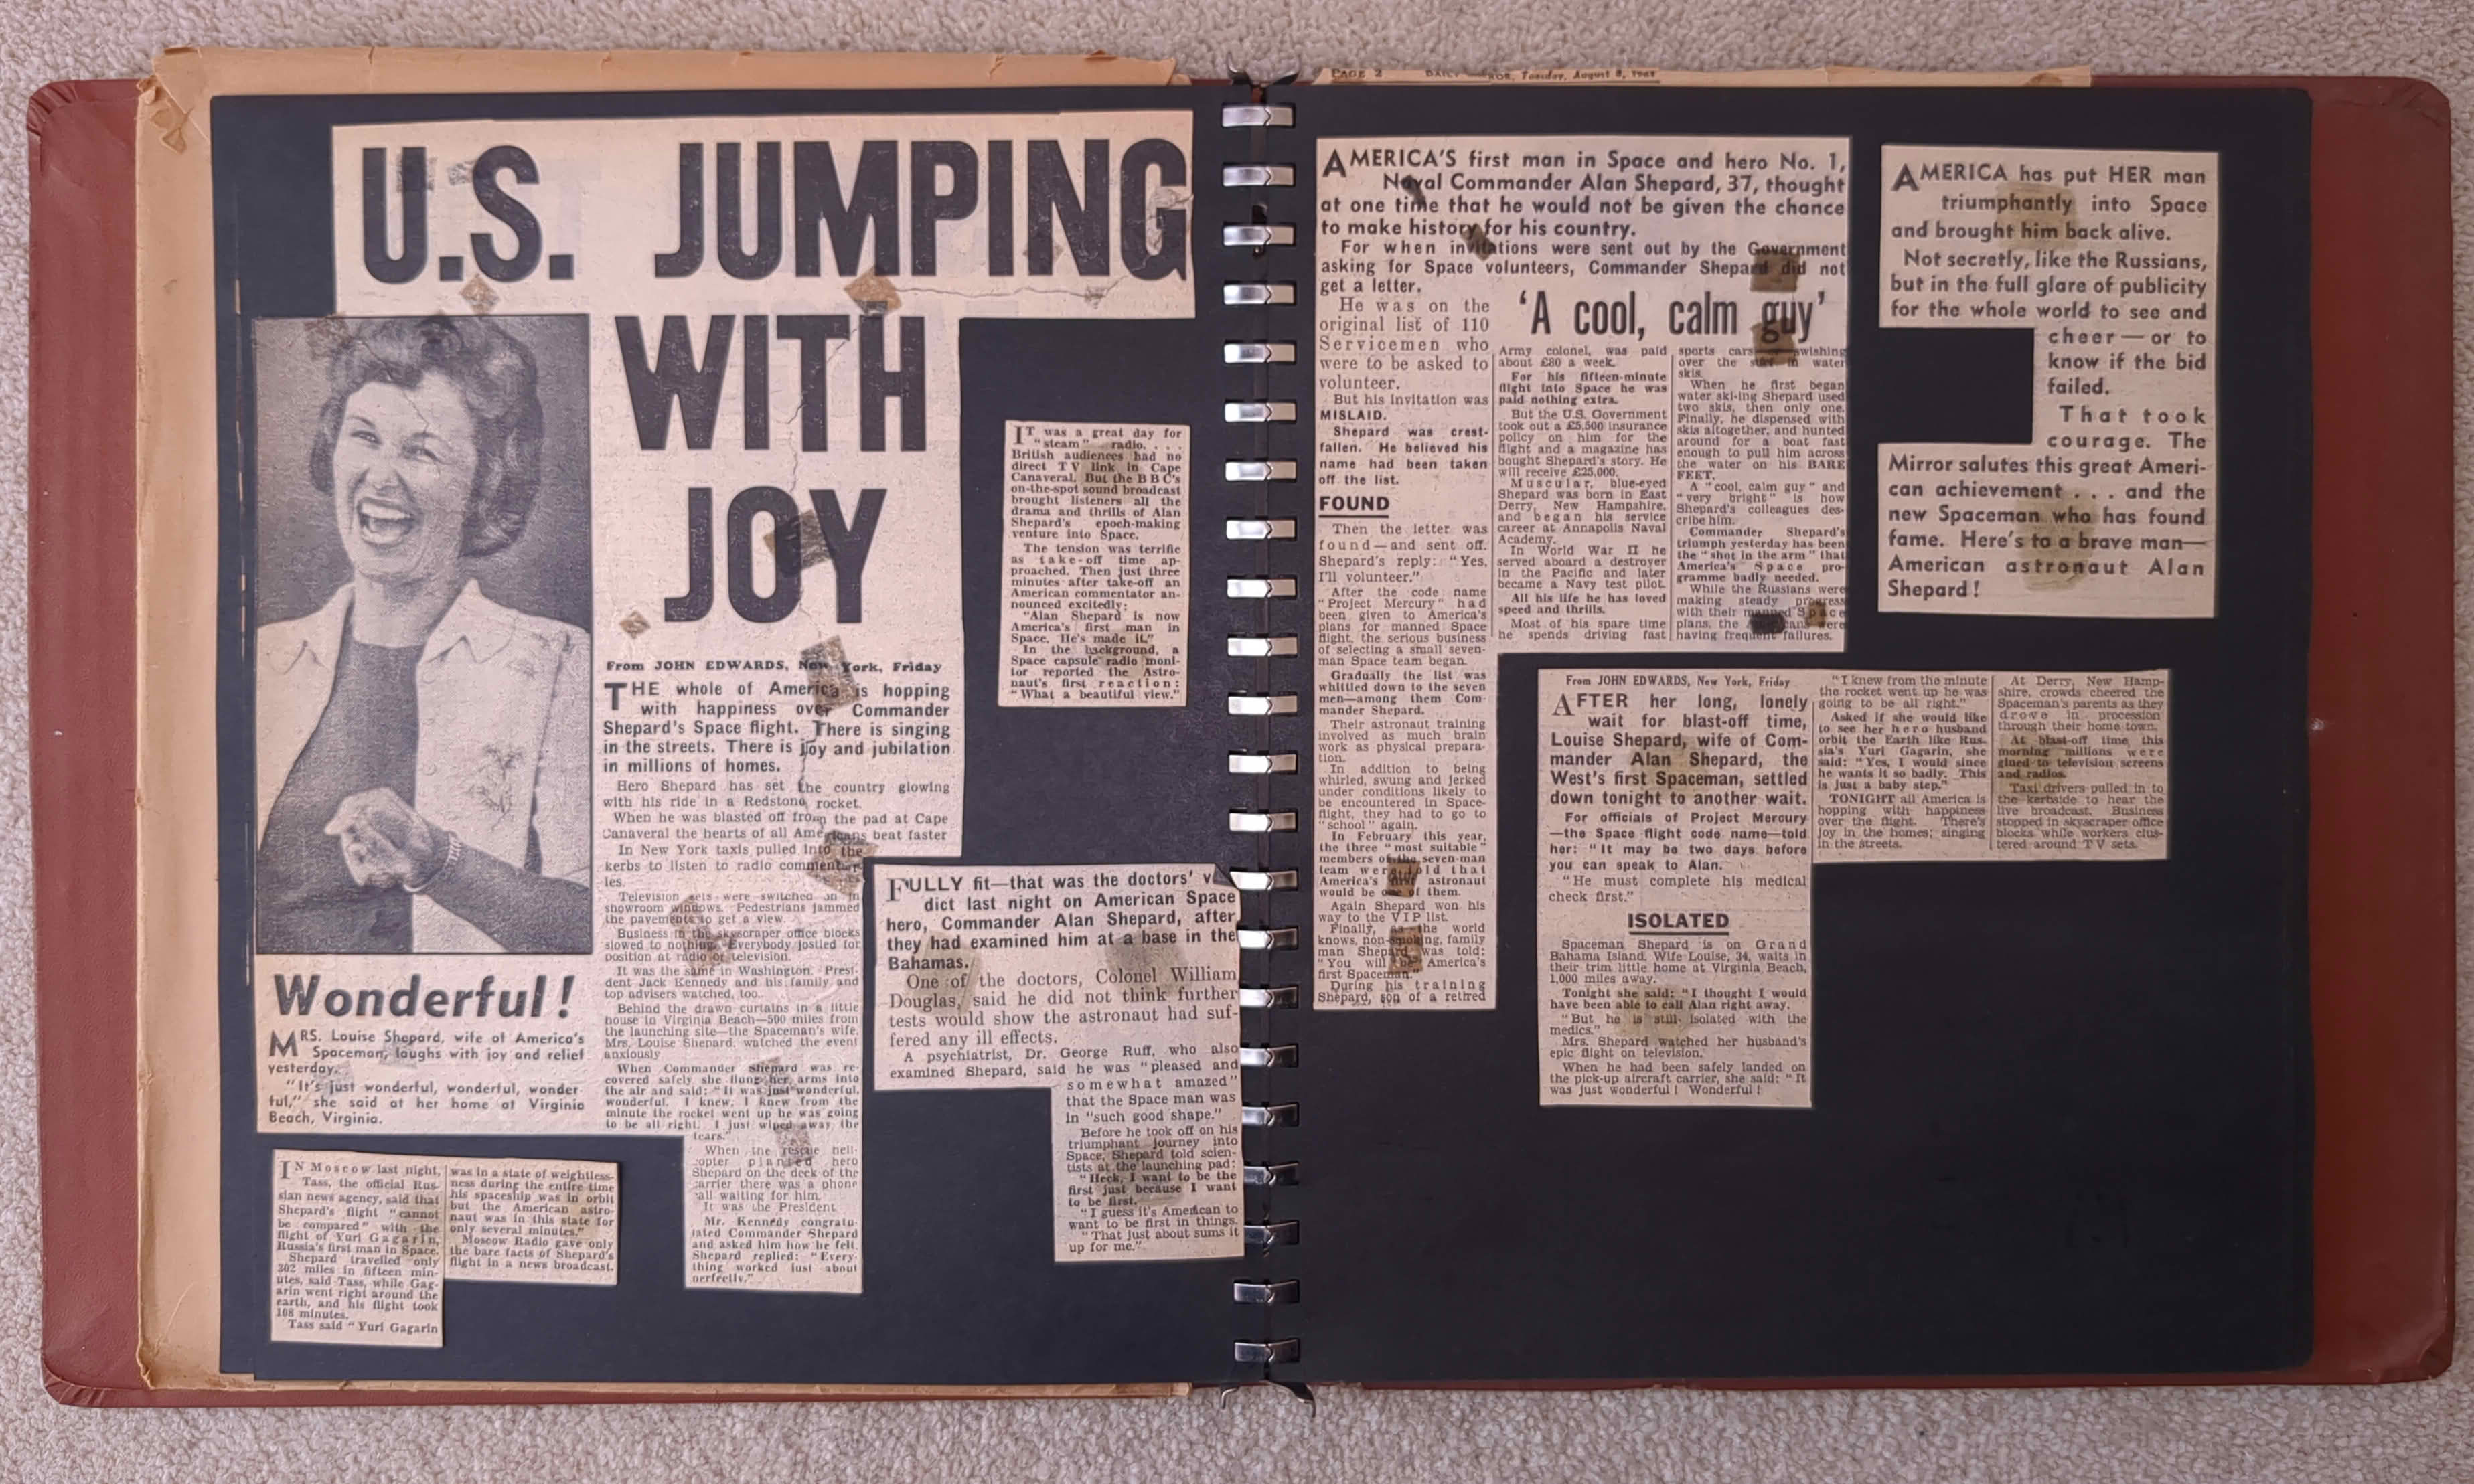 U.S. JUMPING
WITH
JOY
From JOHN EDWARDS, New York, Friday
THE whole of America is hopping
with happiness over Commander
Shepard's Space flight. There is singing
in the streets. There is joy and jubilation
in millions of homes.
Hero Shepard has set the country glowing
with his ride in a Redstone rocket.
When he was blasted off from the pad at Cape
Canaveral the hearts of all Americans beat faster
In New York taxis pulled into the
kerbs to listen to radio commentar-
ies.
Television sets were switched on in
showroom windows. Pedestrians jammed
the pavements to get a view.
Business in the skyscraper office blocks
slowed to nothing. Everybody jostled for
position at radio or television.
It was the same in Washington. Presi-
dent Jack Kennedy and his family and
top advisers watched, too.
Behind the drawn curtains in a little
house in Virginia Beach—500 miles from
the launching site—the Spaceman's wife,
Mrs. Louise Shepard, watched the event
anxiously
When Commander Shepard was re-
covered safely she flung her arms into
the air and said: "It was just wonderful,
wonderful. I knew, I knew from the
minute the rocket went up he was going
to be all right. I just wiped away the
tears."
When the rescue heli-
copter planted hero
Shepard on the deck of the
carrier there was a phone
call waiting for him.
It was the President
Mr. Kennedy congratu-
lated Commander Shepard
and asked him how he felt.
Shepard replied: "Every-
thing worked just about
perfectly."
Wonderful!
MRS. Louise Shepard, wife of America's
Spaceman, laughs with joy and relief
yesterday.
"It's just wonderful, wonderful, wonder-
ful," she said at her home at Virginia
Beach, Virginia.
IN Moscow last night,
Tass, the official Rus-
sian news agency, said that
Shepard's flight "cannot
be compared" with the
flight of Yuri Gagarin,
Russia's first man in Space.
Shepard travelled only
302 miles in fifteen min-
utes, said Tass, while Gag-
arin went right around the
earth, and his flight took
108 minutes.
Tass said "Yuri Gagarin
was in a state of weightless-
ness during the entire time
his spaceship was in orbit
but the American astro-
naut was in this state for
only several minutes."
Moscow Radio gave only
the bare facts of Shepard's
flight in a news broadcast.
IT was a great day for
"steam" radio. . . .
British audiences had no
direct TV link in Cape
Canaveral. But the BBC's
on-the-spot sound broadcast
brought listeners all the
drama and thrills of Alan
Shepard's epoch-making
venture into Space.
The tension was terrific
as take-off time ap-
proached. Then just three
minutes after take-off an
American commentator an-
nounced excitedly:
"Alan Shepard is now
America's first man in
Space. He's made it."
In the background, a
Space capsule radio moni-
tor reported the Astro-
naut's first reaction:
"What a beautiful view."
FULLY fit—that was the doctors' v
dict last night on American Space
hero, Commander Alan Shepard, after
they had examined him at a base in the
Bahamas.
One of the doctors, Colonel William
Douglas, said he did not think further
tests would show the astronaut had suf-
fered any ill effects.
A psychiatrist, Dr. George Ruff, who also
examined Shepard, said he was "pleased and
somewhat amazed"
that the Space man was
in "such good shape."
Before he took off on his
triumphant journey into
Space, Shepard told scien-
tists at the launching pad:
"Heck, I want to be the
first just because I want
to be first.
"I guess it's American to
want to be first in things.
"That just about sums it
up for me."
PAGE 2 DAILY Tuesday, August 8, 1961
AMERICA'S first man in Space and hero No. 1,
Naval Commander Alan Shepard, 37, thought
at one time that he would not be given the chance
to make history for his country.
For when invitations were sent out by the Government
asking for Space volunteers, Commander Shepard did not
get a letter.
He was on the
original list of 110
Servicemen who
were to be asked to
volunteer.
But his invitation was
MISLAID.
Shepard was crest-
fallen. He believed his
name had been taken
off the list.
FOUND
Then the letter was
found—and sent off.
Shepard's reply: "Yes,
I'll volunteer."
After the code name
"Project Mercury" had
been given to America's
plans for manned Space
flight, the serious business
of selecting a small seven-
man Space team began.
Gradually the list was
whittled down to the seven
men—among them Com-
mander Shepard.
Their astronaut training
involved as much brain
work as physical prepara-
tion.
In addition to being
whirled, swung and jerked
under conditions likely to
be encountered in Space-
flight, they had to go to
"school" again.
In February this year,
the three "most suitable"
members of the seven-man
team were told that
America's first astronaut
would be one of them.
Again Shepard won his
way to the VIP list.
Finally, as the world
knows, non-smoking, family
man Shepard was told:
"You will be America's
first Spaceman."
During his training
Shepard, son of a retired
'A cool, calm guy'
Army colonel, was paid
about £80 a week.
For his fifteen-minute
flight into Space he was
paid nothing extra.
But the U.S. Government
took out a £5,500 insurance
policy on him for the
flight and a magazine has
bought Shepard's story. He
will receive £25,000.
Muscular, blue-eyed
Shepard was born in East
Derry, New Hampshire,
and began his service
career at Annapolis Naval
Academy.
In World War II he
served aboard a destroyer
in the Pacific and later
became a Navy test pilot.
All his life he has loved
speed and thrills.
Most of his spare time
he spends driving fast
sports cars swishing
over the surf in water
skis.
When he first began
water ski-ing Shepard used
two skis, then only one.
Finally, he dispensed with
skis altogether, and hunted
around for a boat fast
enough to pull him across
the water on his BARE
FEET.
A "cool, calm guy" and
"very bright" is how
Shepard's colleagues des-
cribe him.
Commander Shepard's
triumph yesterday has been
the "shot in the arm" that
America's Space pro-
gramme badly needed.
While the Russians were
making steady progress
with their manned Space
plans, the Americans were
having frequent failures.
AMERICA has put HER man
triumphantly into Space
and brought him back alive.
Not secretly, like the Russians,
but in the full glare of publicity
for the whole world to see and
cheer—or to
know if the bid
failed.
That took
courage. The
Mirror salutes this great Ameri-
can achievement . . . and the
new Spaceman who has found
fame. Here's to a brave man—
American astronaut Alan
Shepard!
From JOHN EDWARDS, New York, Friday
AFTER her long, lonely
wait for blast-off time,
Louise Shepard, wife of Com-
mander Alan Shepard, the
West's first Spaceman, settled
down tonight to another wait.
For officials of Project Mercury
—the Space flight code name—told
her: "It may be two days before
you can speak to Alan.
"He must complete his medical
check first."
ISOLATED
Spaceman Shepard is on Grand
Bahama Island. Wife Louise, 34, waits in
their trim little home at Virginia Beach,
1,000 miles away.
Tonight she said: "I thought I would
have been able to call Alan right away.
"But he is still isolated with the
medics."
Mrs. Shepard watched her husband's
epic flight on television.
When he had been safely landed on
the pick-up aircraft carrier, she said: "It
was just wonderful! Wonderful!
"I knew from the minute
the rocket went up he was
going to be all right."
Asked if she would like
to see her hero husband
orbit the Earth like Rus-
sia's Yuri Gagarin, she
said: "Yes, I would since
he wants it so badly. This
is just a baby step."
TONIGHT all America is
hopping with happiness
over the flight. There's
joy in the homes; singing
in the streets.
At Derry, New Hamp-
shire, crowds cheered the
Spaceman's parents as they
drove in procession
through their home town.
At blast-off time this
morning millions were
glued to television screens
and radios.
Taxi drivers pulled in to
the kerbside to hear the
live broadcast. Business
stopped in skyscraper office
blocks while workers clus-
tered around TV sets.